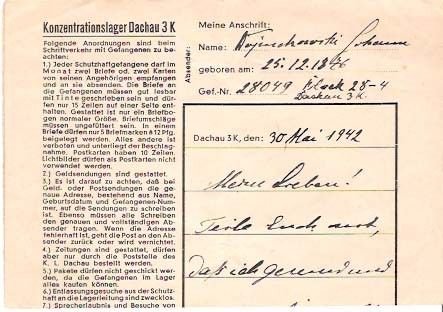 Konzentrationslager Dachau 3 K
Folgende Anordnungen sind beim
Schriftverkehr mit Gefangenen zu be-
achten:
1.) Jeder Schutzhaftgefangene darf im
Monat zwei Briefe od. zwei Karten
von seinen Angehörigen empfangen
und an sie absenden. Die Briefe an
die Gefangenen müssen gut lesbar
mit Tinte geschrieben sein und dür-
fen nur 15 Zeilen auf einer Seite ent-
halten. Gestattet ist nur ein Briefbo-
gen normaler Größe. Briefumschläge
müssen ungefüttert sein. In einem
Briefe dürfen nur 5 Briefmarken à 12 Pfg.
beigelegt werden. Alles andere ist
verboten und unterliegt der Beschlag-
nahme. Postkarten haben 10 Zeilen.
Lichtbilder dürfen als Postkarten nicht
verwendet werden.
2.) Geldsendungen sind gestattet.
3.) Es ist darauf zu achten, daß bei
Geld- oder Postsendungen die ge-
naue Adresse, bestehend aus Name,
Geburtsdatum und Gefangenen-Num-
mer, auf die Sendungen zu schreiben
ist. Ebenso müssen alle Schreiben
den genauen und vollständigen Ab-
sender tragen. Wenn die Adresse
fehlerhaft ist, geht die Post an den Ab-
sender zurück oder wird vernichtet.
4.) Zeitungen sind gestattet, dürfen
aber nur durch die Poststelle des
K. L. Dachau bestellt werden.
5.) Pakete dürfen nicht geschickt wer-
den, da die Gefangenen im Lager
alles kaufen können.
6.) Entlassungsgesuche aus der Schutz-
haft an die Lagerleitung sind zwecklos.
7.) Sprecherlaubnis und Besuche von
Absender:
Meine Anschrift:
Name: Johann
geboren am: 25.12.18
Gef.-Nr. 28049 Block 28-4
Dachau 3 K.
Dachau 3 K, den: 30 Mai 1942
Meine Lieben!
Teile Euch mit,
daß ich gesund und